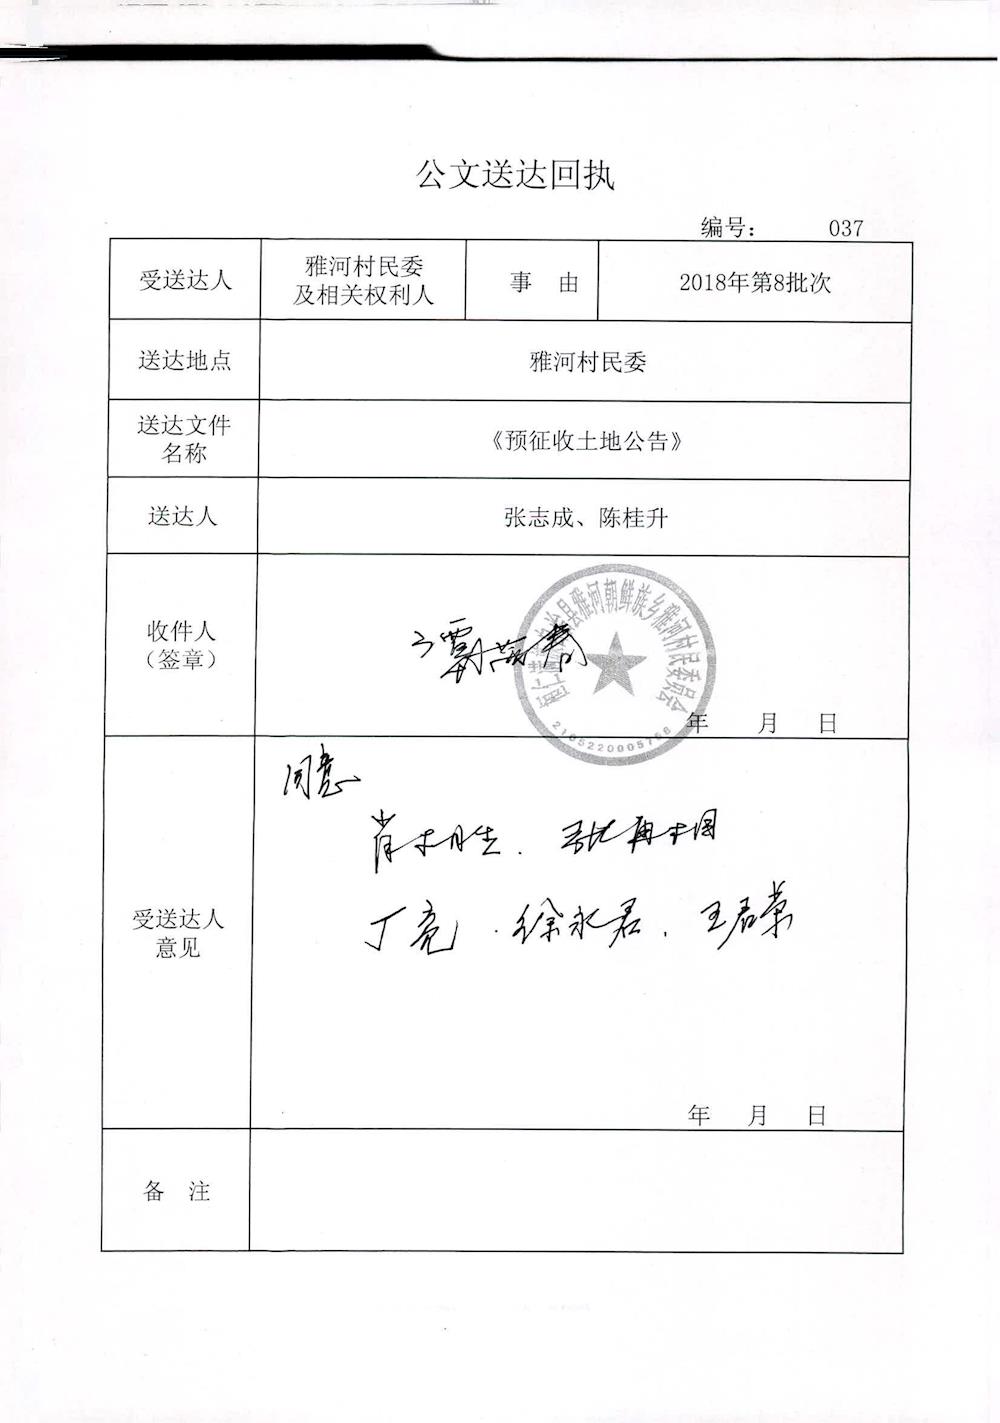 公文送达回执
编号： 037
受送达人
雅河村民委
及相关权利人
事 由
2018年第8批次
送达地点
雅河村民委
送达文件
名称
《预征收土地公告》
送达人
张志成、陈桂升
收件人
（签章）
县雅河朝鲜族乡雅河村民委员会
年 月 日
同意
丁亮．徐永君．王君荣
受送达人
意见
年 月 日
备 注